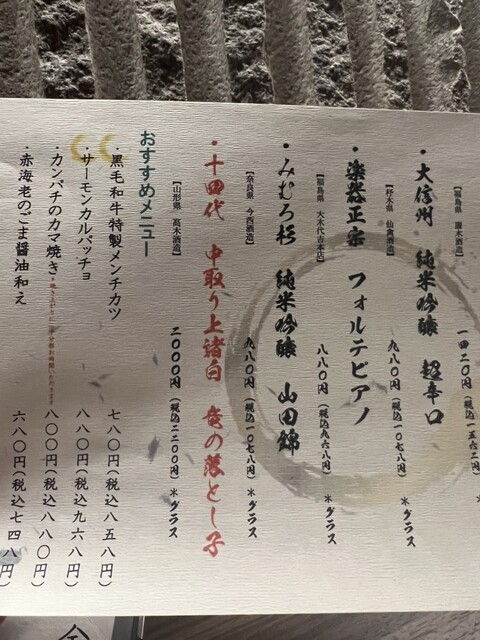 【福島県　廣木酒造】
一四二〇円（税込一五六二円）
・大信州　純米吟醸　超辛口
【栃木県　仙禽酒造】
九八〇円（税込一〇七八円）＊グラス
・楽器正宗　フォルテピアノ
【福島県　大木代吉本店】
八八〇円（税込九六八円）＊グラス
・みむろ杉　純米吟醸　山田錦
【奈良県　今西酒造】
九八〇円（税込一〇七八円）＊グラス
・十四代　中取り上諸白　竜の落とし子
【山形県　高木酒造】
二〇〇〇円（税込二二〇〇円）＊グラス
おすすめメニュー
・黒毛和牛特製メンチカツ　七八〇円（税込八五八円）
・サーモンカルパッチョ　八八〇円（税込九六八円）
・カンパチのカマ焼き　八〇〇円（税込八八〇円）
・赤海老のごま醤油和え　六八〇円（税込七四八円）